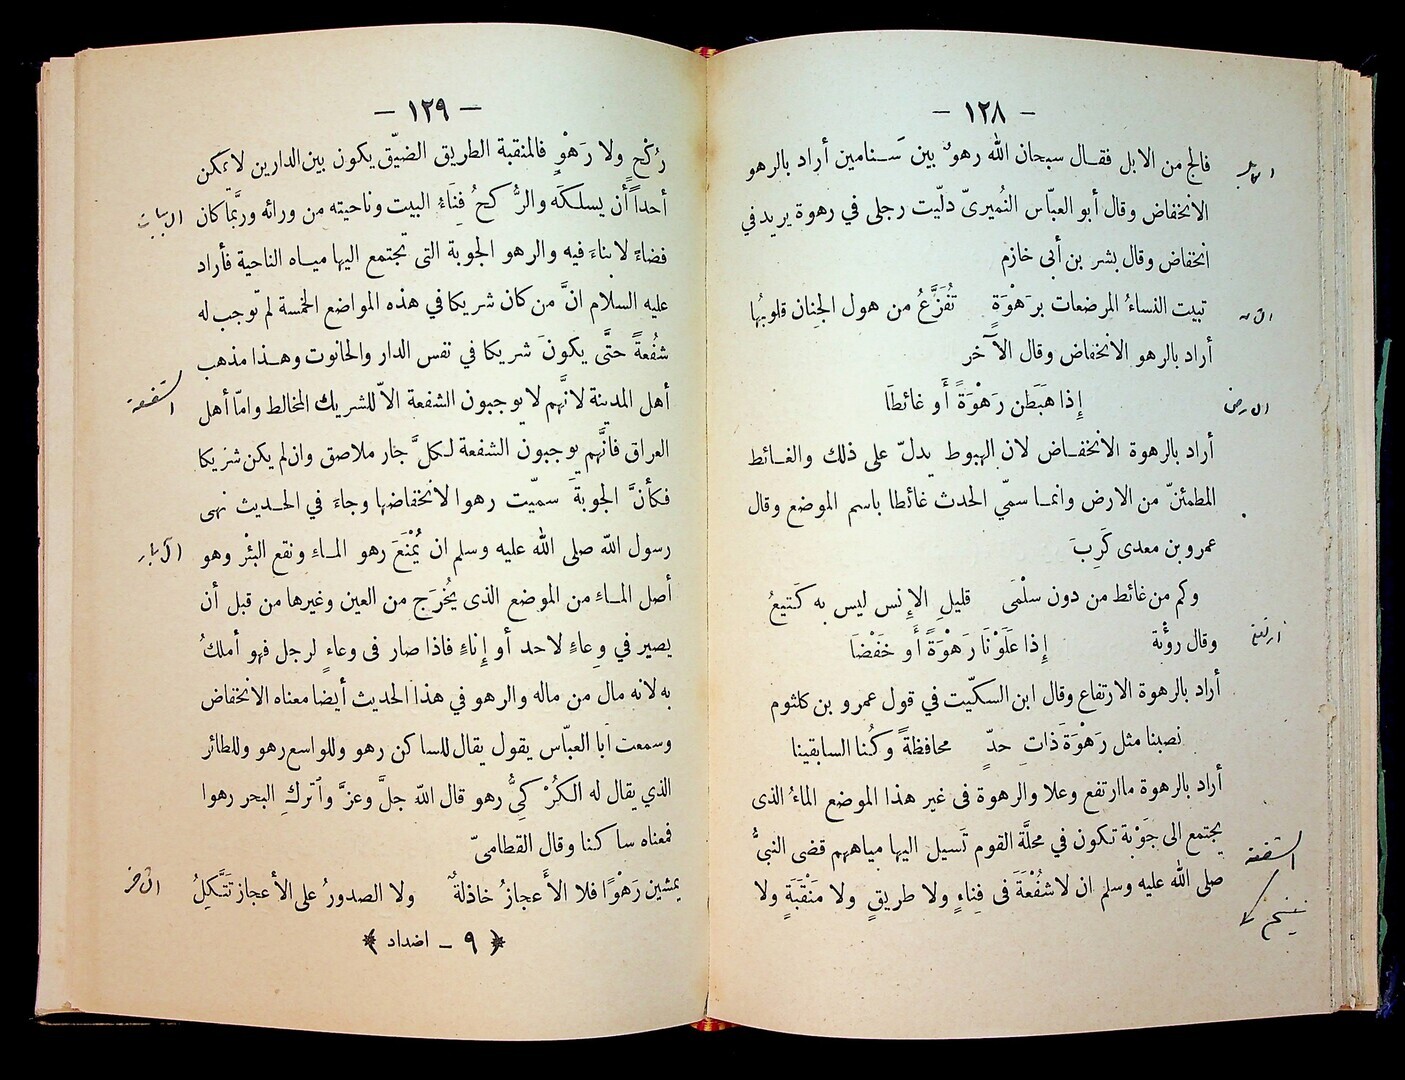 – ١٢٨ –
فالج من الابل فقال سبحان الله رهوٌ بين سَنامين أراد بالرهو
الانخفاض وقال أبو العبّاس النُميرىّ دلّيت رجلى في رهوة يريد في
انخفاض وقال بشر بن أبى خازم
تبيت النساءُ المرضعات برَهْوَةٍ تُفَزَّعُ من هول الجنان قلوبُها
أراد بالرهو الانخفاض وقال الآخر
إذا هَبَطن رَهْوَةً أَو غائطَا
أراد بالرهوة الانخفاض لان الهبوط يدلّ على ذلك والغائط
المطمئنّ من الارض وانما سمّي الحدث غائطا باسم الموضع وقال
عمرو بن معدى كَرِبَ
وكم من غائط من دون سلْمَى قليلِ الإنس ليس به كَتيعُ
وقال رؤْبة إذا عَلَوْنَا رَهْوَةً أَو خَفْضَا
أراد بالرهوة الارتفاع وقال ابن السكّيت في قول عمرو بن كلثوم
نصبنا مثل رَهْوَةَ ذاتِ حدّ محافظةً وكُنا السابقينا
أراد بالرهوة ماارتفع وعلا والرهوة فى غير هذا الموضع الماءُ الذى
يجتمع الى جَوْبة تكون في محلّة القوم تَسيل اليها مياههم قضى النبىُّ
صلى الله عليه وسلم ان لا شُفْعَةَ فى فِناءٍ ولا طريقٍ ولا مَنْقَبَةٍ ولا
الشفعة
– ١٢٩ –
رُكْحٍ ولا رَهْوٍ فالمنقبة الطريق الضيّق يكون بين الدارين لا يمكن
أحداً أَن يسلكَه والرُّكحُ فِنَاءُ البيت وناحيته من ورائه وربَّما كان
فضاءً لا بناءَ فيه والرهو الجوبة التى تجتمع اليها مياه الناحية فأراد
عليه السلام انَّ من كان شريكا في هذه المواضع الخمسة لم توجب له
شفُعةً حتَّى يكونَ شريكا في نفس الدار والحانوت وهذا مذهب
أهل المدينة لانَّهم لا يوجبون الشفعة الاّ للشريك المخالط وامّا أهل
العراق فانَّهم يوجبون الشفعة لكلّ جَار ملاصق وان لم يكن شريكا
فكأنَّ الجوبةَ سميّت رهوا لانخفاضها وجاءَ في الحديث نهى
رسول الله صلى الله عليه وسلم ان يُمْنَعَ رهو الماءِ ونقع البئْر وهو
أصل الماءِ من الموضع الذى يُخْرَج من العين وغيرها من قبل أن
يصير في وِعاءٍ لاحد أو إناءٍ فاذا صار فى وعاءٍ لرجل فهو أملكُ
به لانه مال من ماله والرهو في هذا الحديث أيضا معناه الانخفاض
وسمعت أبا العبّاس يقول يقال للساكن رهو وللواسع رهو وللطائر
الذي يقال له الكُرْكيُّ رهو قال الله جلَّ وعزَّ وٱترك البحر رهوا
فمعناه ساكنا وقال القطامىّ
يمشين رَهْوًا فلا الأَعجازُ خاذلةٌ ولا الصدورُ على الأعجاز تَتَّكِلُ
﴿ ٩ – اضداد ﴾
الشفعة